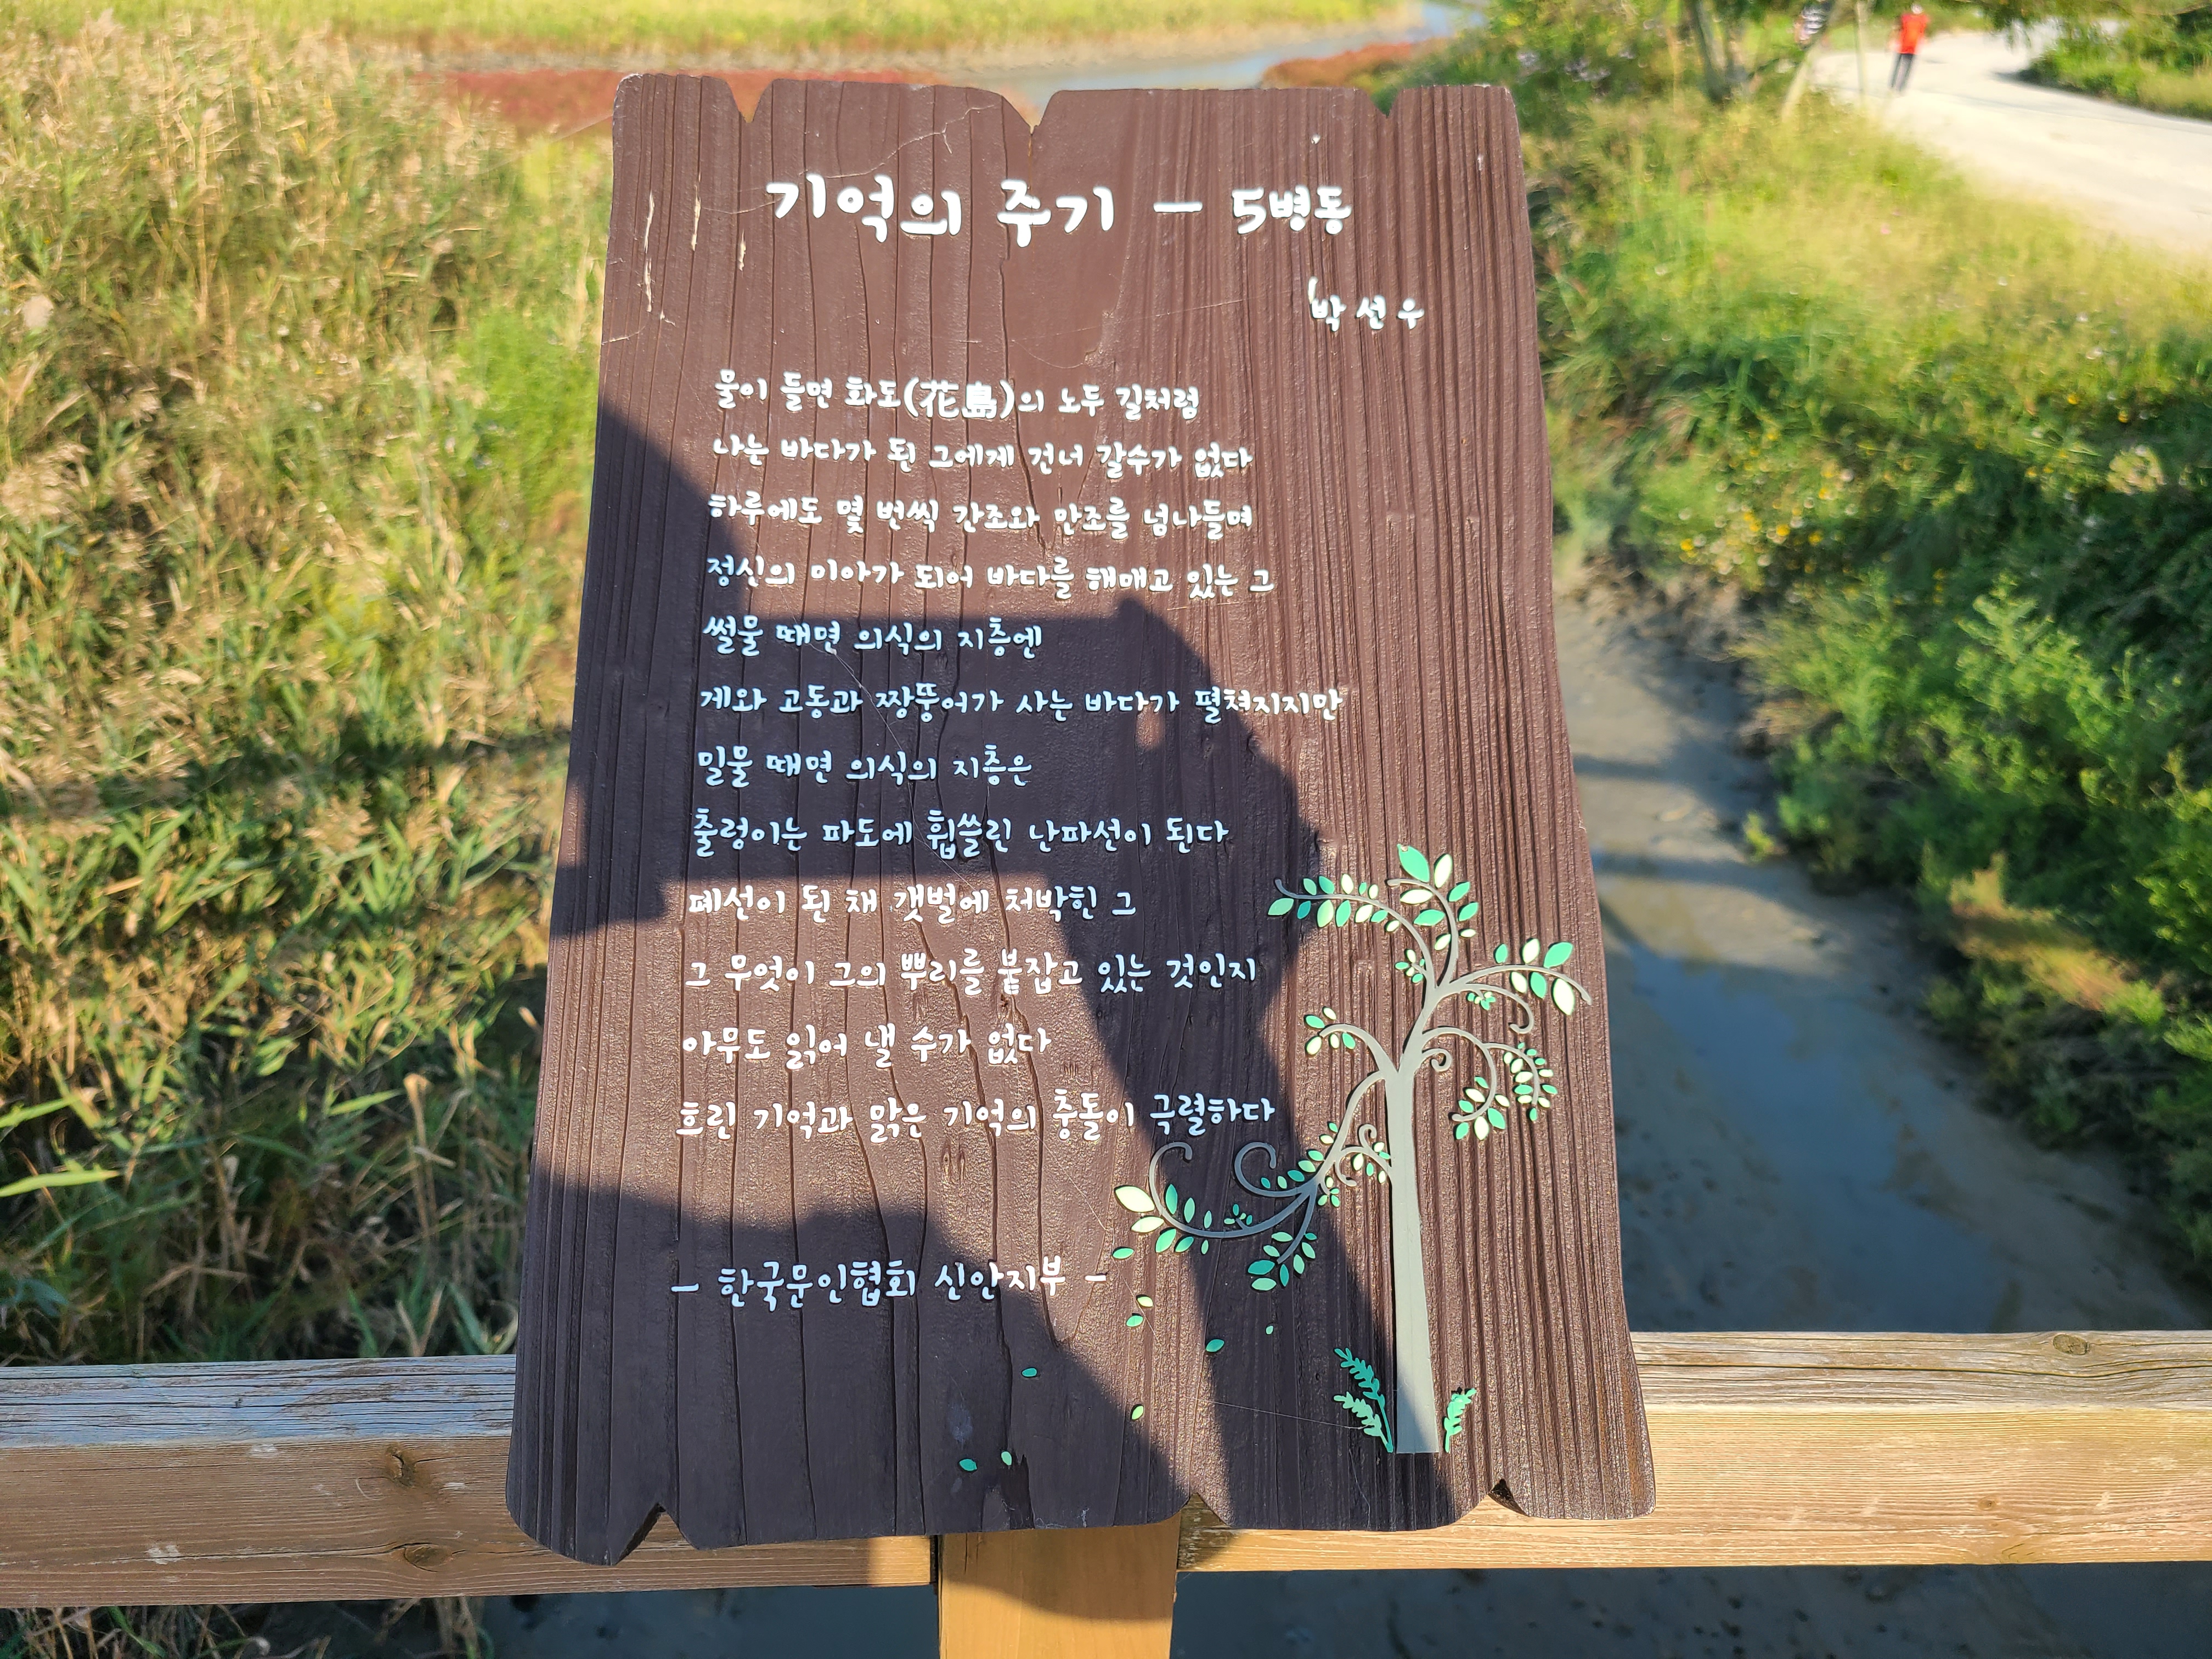 기억의 주기 – 5병동
박선우
물이 들면 화도(花島)의 노두 길처럼
나는 바다가 된 그에게 건너 갈수가 없다
하루에도 몇 번씩 간조와 만조를 넘나들며
정신의 미아가 되어 바다를 해매고 있는 그
썰물 때면 의식의 지층엔
게와 고동과 짱뚱어가 사는 바다가 펼쳐지지만
밀물 때면 의식의 지층은
출렁이는 파도에 휩쓸린 난파선이 된다
폐선이 된 채 갯벌에 처박힌 그
그 무엇이 그의 뿌리를 붙잡고 있는 것인지
아무도 읽어 낼 수가 없다
흐린 기억과 맑은 기억의 충돌이 극렬하다
– 한국문인협회 신안지부 –